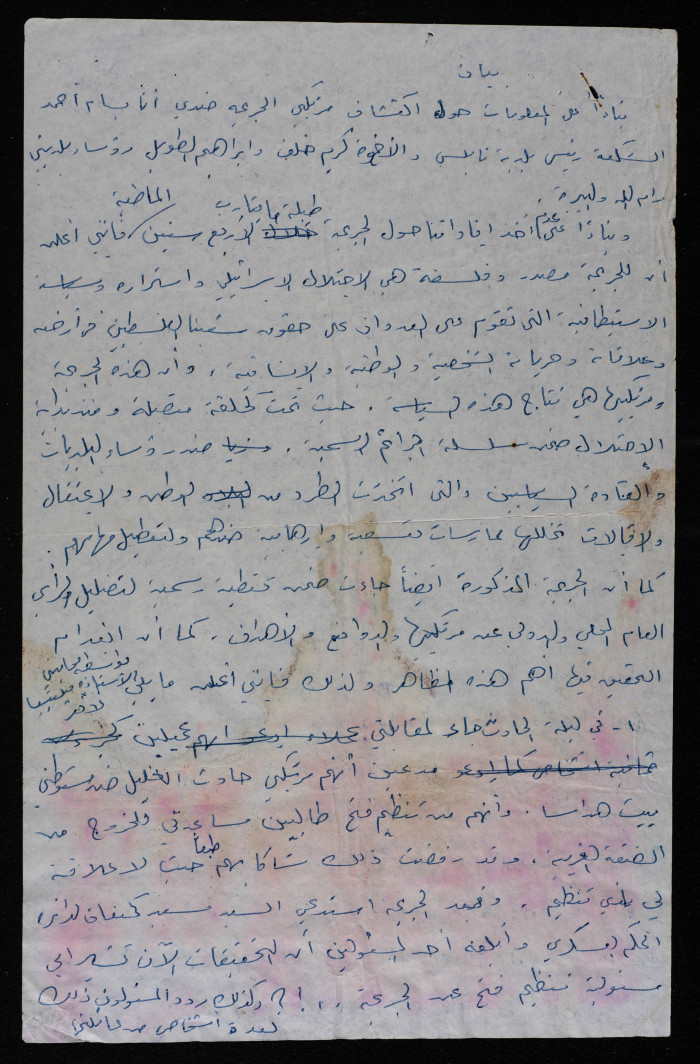 بيان
بناءاً على المعلومات حول اكتشاف مرتكبي الجريمة ضدي أنا بسام أحمد
الشكعة رئيس بلدية نابلس والأخوة كريم خلف وابراهيم الطويل رؤساء بلديتي
رام الله والبيرة.
وبناءاً على عدم أخذ افاداتنا حول الجريمة طيلة ما يقارب الأربع سنين الماضية فانني أعلن
أن للجريمة مصدر وفلسفة هي الاحتلال الاسرائيلي واستمراره وسياسته
الاستيطانية التي تقوم على العدوان على حقوق شعبنا الفلسطيني في أرضه
وعلاقاته وحرياته الشخصية والوطنية والانسانية، وأن هذه الجريمة
ومرتكبيها هي نتاج هذه السياسة. حيث تمت كحلقة متصلة
الاحتلال ضمن سلسلة الجرائم الرسمية. ضد رؤساء البلديات
والقادة السياسيين والتي اتخذت الطرد من الوطن والاعتقال
والاقالات تخللها ممارسات تعسفية وارهابية ضدهم ولتعطيل مهامهم.
كما أن الجريمة المذكورة أيضاً جاءت ضمن تغطية رسمية لتضليل الرأي
العام المحلي والدولي عن مرتكبيها والدوافع والأهداف. كما أن انعدام
التحقيق فيها أهم هذه المظاهر ولذلك فانني أعلن ما يلي
١- في ليلة الحادث جاء لمقابلتي عميلين
مدعين أنهم مرتكبي حادث الخليل ضد مستوطني
بيت هداسا. وأنهم من تنظيم فتح طالبين مساعدتي للخروج من
الضفة الغربية، وقد رفضت ذلك شاكا بهم طبعاً حيث لا علاقة
لي بأي تنظيم. وبعد الجريمة استدعي السيد سعيد كنعان لدائرة
الحكم العسكري وأبلغه أحد المسؤولين أن التحقيقات الآن تشير الى
مسئولية تنظيم فتح عن الجريمة ..! وكذلك ردد المسئولون ذلك
لعدة أشخاص من عائلتي